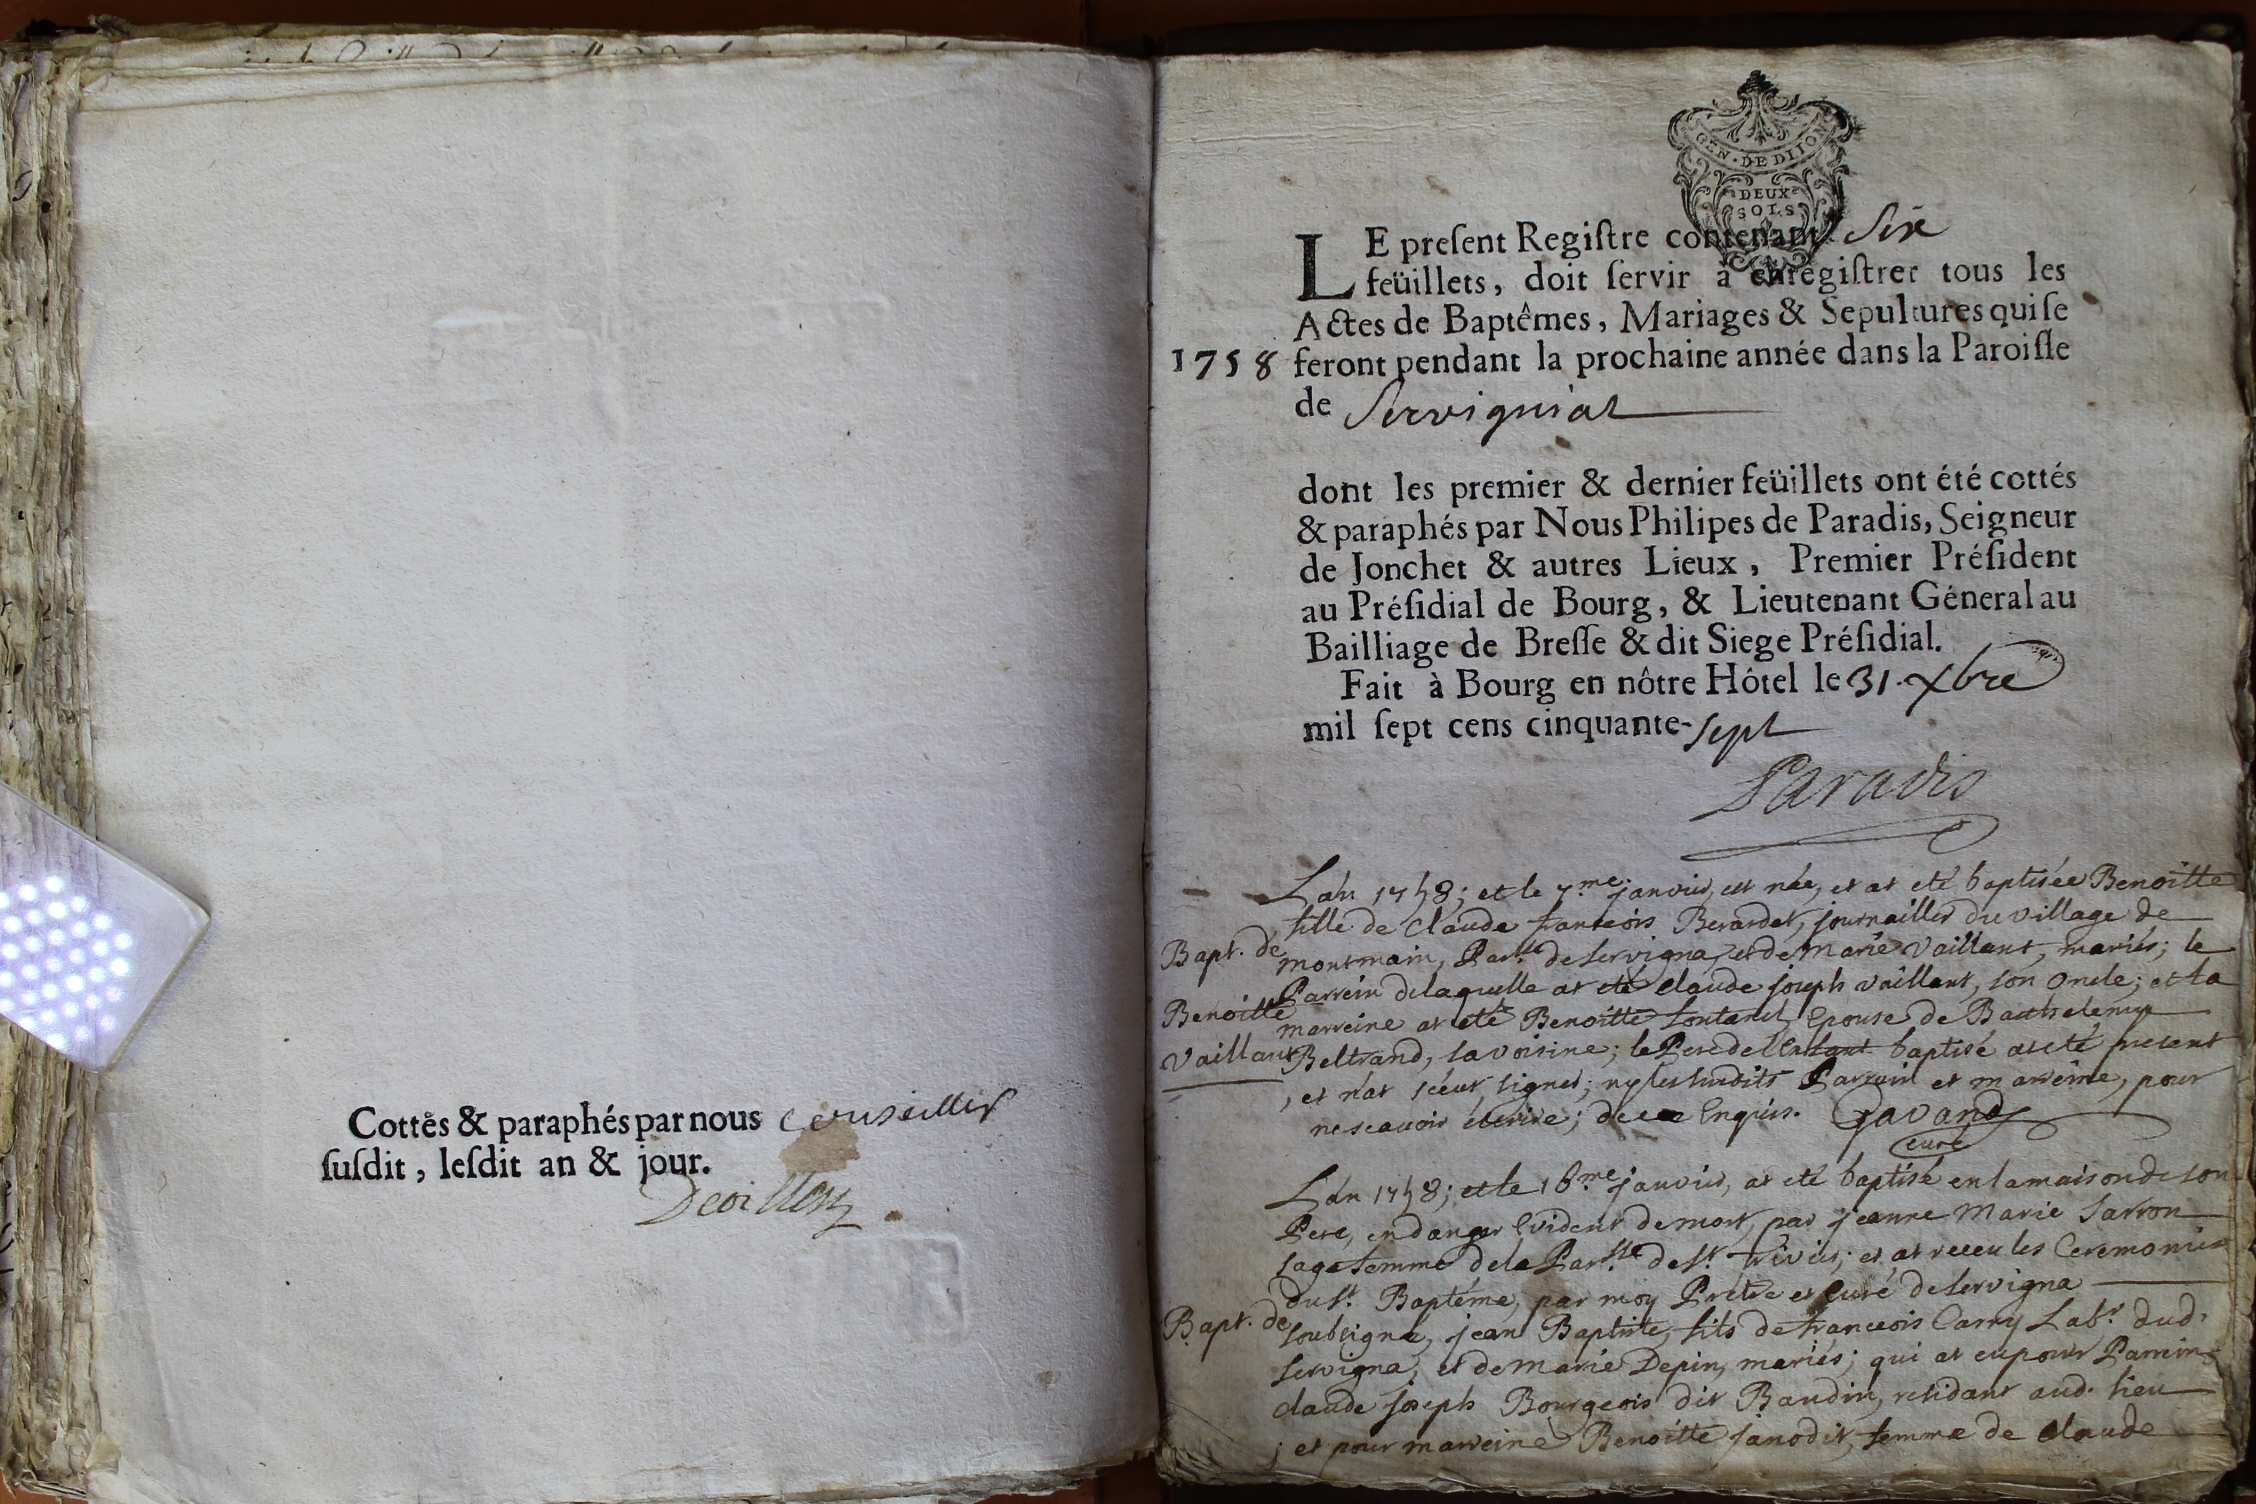 Cottés & paraphés par nous Conseiller
susdit, lesdit an & jour.
GEN · DE DIJON
DEUX
SOLS
LE present Registre contenant Six
feüillets, doit servir à enregistrer tous les
Actes de Baptêmes, Mariages & Sepultures qui se
1758 feront pendant la prochaine année dans la Paroisse
de Servigniat
dont les premier & dernier feüillets ont été cottés
& paraphés par Nous Philipes de Paradis, Seigneur
de Jonchet & autres Lieux, Premier Président
au Présidial de Bourg, & Lieutenant Géneral au
Bailliage de Bresse & dit Siege Présidial.
Fait à Bourg en nôtre Hôtel le 31. Xbre
mil sept cens cinquante-sept
Paradis
L'an 1758; et le 7.me janvier, est née, et at eté baptisée Benoitte
fille de Claude francois Berardet, journaillier du village de
Bapt. de
montmain, Par.sse de Servigna, et de Marie Vaillant, mariés; le
Parrein de laquelle at eté Claude joseph Vaillant, son Oncle; et la
Benoitte
marreine at eté Benoitte fontanel, Epouse de Barthelemy
Vaillant
Beltrand, sa voisine; le Pere de l'Enfant baptisé at eté present
, et n'at sceut signer; ny les susdits Parrein et marreine, pour
ne scavoir ecrire; de ce Enquis. Gavand
curé
L'an 1758; et le 16.me janvier, at eté baptisé en la maison de son
Pere, en danger Evident de mort, par jeanne Marie Sarron
sage femme de la Par.sse de St. Trivier; et at receu les Ceremonies
du St. Baptéme, par moy Prétre et Curé de Servigna
Bapt. de
soubsigné, jean Baptiste, fils de francois Carry Lab.r dud.
Servigna, et de Marie Depin, mariés; qui at eu pour Parrein
claude joseph Bourgeois dit Baudin, residant aud. lieu
; et pour marreine Benoitte janodit, femme de Claude